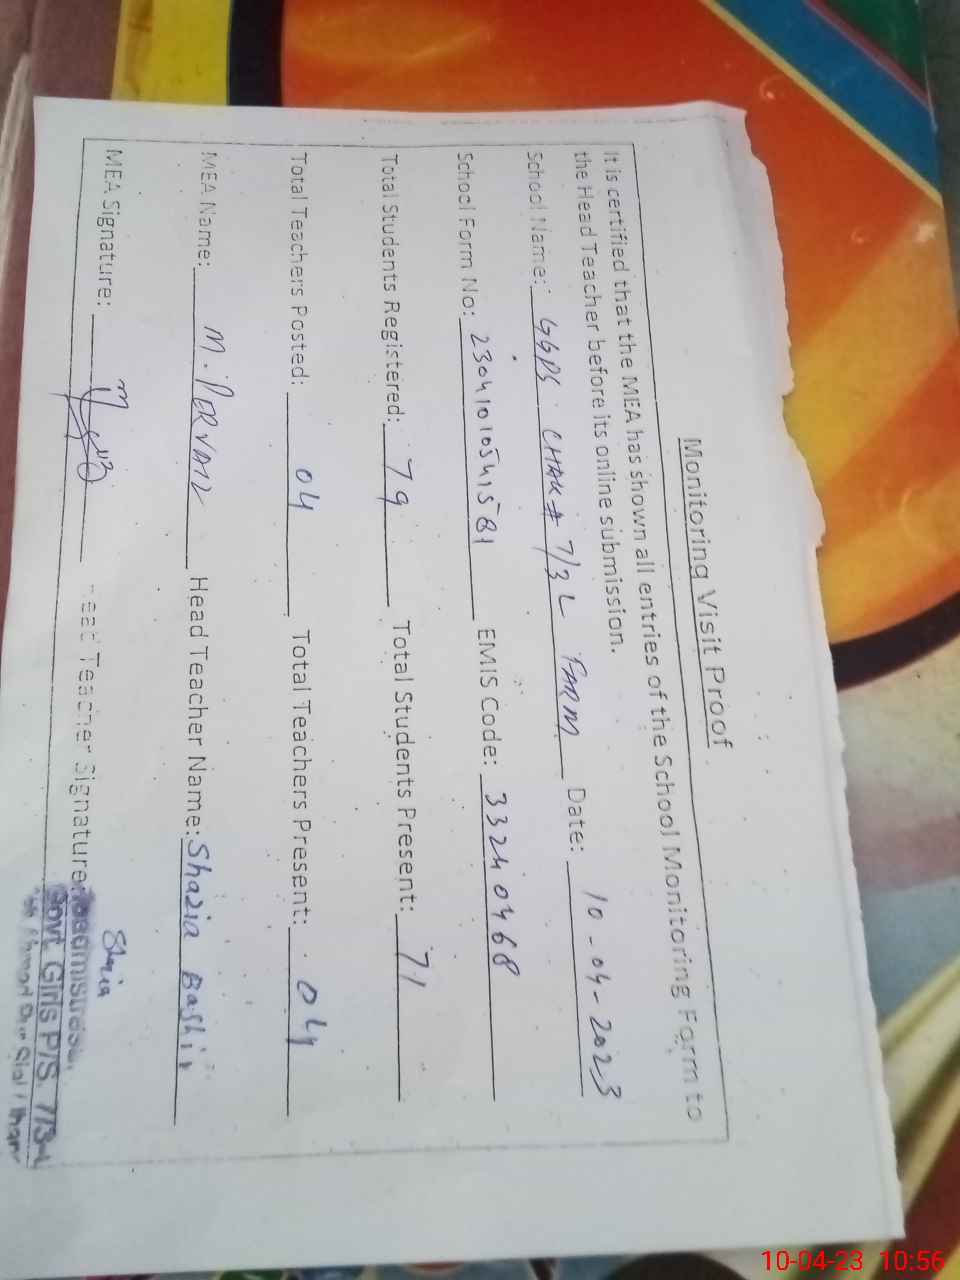 Monitoring Visit Proof
It is certified that the MEA has shown all entries of the School Monitoring Form to
the Head Teacher before its online submission.
School Name: GGPS CHAK # 7/3L FARM Date: 10-04-2023
School Form No: 23041010541581 EMIS Code: 33240468
Total Students Registered: 79 Total Students Present: 71
Total Teachers Posted: 04 Total Teachers Present: 04
MEA Name: M. PERVAIZ Head Teacher Name: Shazia Bashir
MEA Signature: Head Teacher Signature: Shazia
Headmistress
Govt. Girls P/S. 7/3-L
10-04-23 10:56